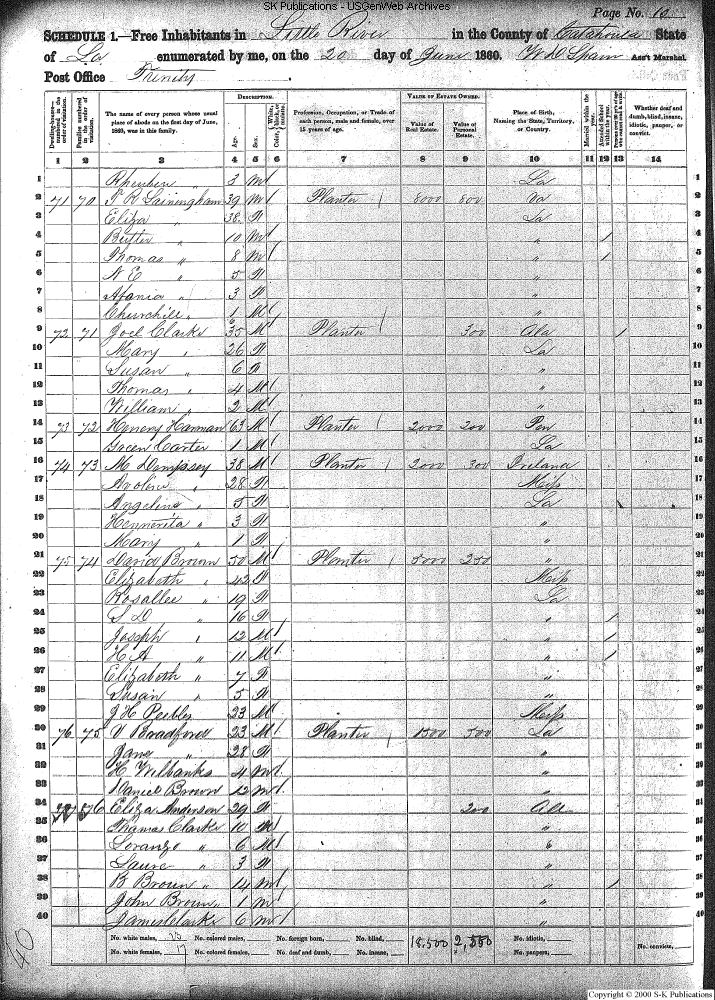 SK Publications - USGenWeb Archives
Page No. 10
SCHEDULE 1.—Free Inhabitants in Little River in the County of Catahoula State
of La enumerated by me, on the 20 day of June 1860. W D Spain Ass't Marshal.
Post Office Trinity
Dwelling-houses— numbered in the order of visitation.
Families numbered in the order of visitation.
The name of every person whose usual place of abode on the first day of June, 1860, was in this family.
DESCRIPTION.
Age.
Sex.
Color, White, black, or mulatto.
Profession, Occupation, or Trade of each person, male and female, over 15 years of age.
VALUE OF ESTATE OWNED.
Value of Real Estate.
Value of Personal Estate.
Place of Birth, Naming the State, Territory, or Country.
Married within the year.
Attended School within the year.
Whether deaf and dumb, blind, insane, idiotic, pauper, or convict.
1 2 3 4 5 6 7 8 9 10 11 12 13 14
1 3 M La 1
2 71 70 39 M Planter 8000 800 Va 2
3 Eliza " 38 F La 3
4 " 10 M " / 4
5 Thomas " 8 M " / 5
6 N E " 5 F " 6
7 " 3 F " 7
8 Churchill " 1 M " 8
9 72 71 Joel Clarks 35 M Planter 300 Ala / 9
10 Mary " 26 F La 10
11 Susan " 6 F " 11
12 Thomas " 4 M " 12
13 William " 2 M " 13
14 73 72 Henery Harman 63 M Planter 2000 200 Pen 14
15 Green Carter 1 M La 15
16 74 73 M Dempsey 38 M Planter 2000 300 Ireland 16
17 " 28 F Miss 17
18 Angeline " 5 F La 18
19 Hennerita " 3 F " 19
20 Mary " 1 F " 20
21 75 74 David Brown 50 M Planter 5000 250 " 21
22 Elizabeth " 42 F Miss 22
23 Rosallee " 19 F La 23
24 S D " 16 F " / 24
25 Joseph " 12 M " / 25
26 H A " 11 M " / 26
27 Elizabeth " 7 F " 27
28 Susan " 5 F " 28
29 J H Peebles 23 M Miss 29
30 76 75 V Bradford 23 M Planter 1500 500 La 30
31 Jane " 28 F " 31
32 H Wilbanks 4 M " 32
33 Daniel Brown 12 M " 33
34 76 Eliza Anderson 29 F 200 34
35 Thomas Clarks 10 M " 35
36 Loranzo " 6 M 36
37 Laure " 3 F " 37
38 B Brown " 14 M " / 38
39 John Brown " 1 M " 39
40 James Clarks 6 M " 40
No. white males, 23 No. colored males, No. foreign born, No. blind, 18,500 No. idiotic,
No. white females, 17 No. colored females, No. deaf and dumb, No. insane, No. paupers, No. convicts,
40
Copyright © 2000 S-K Publications